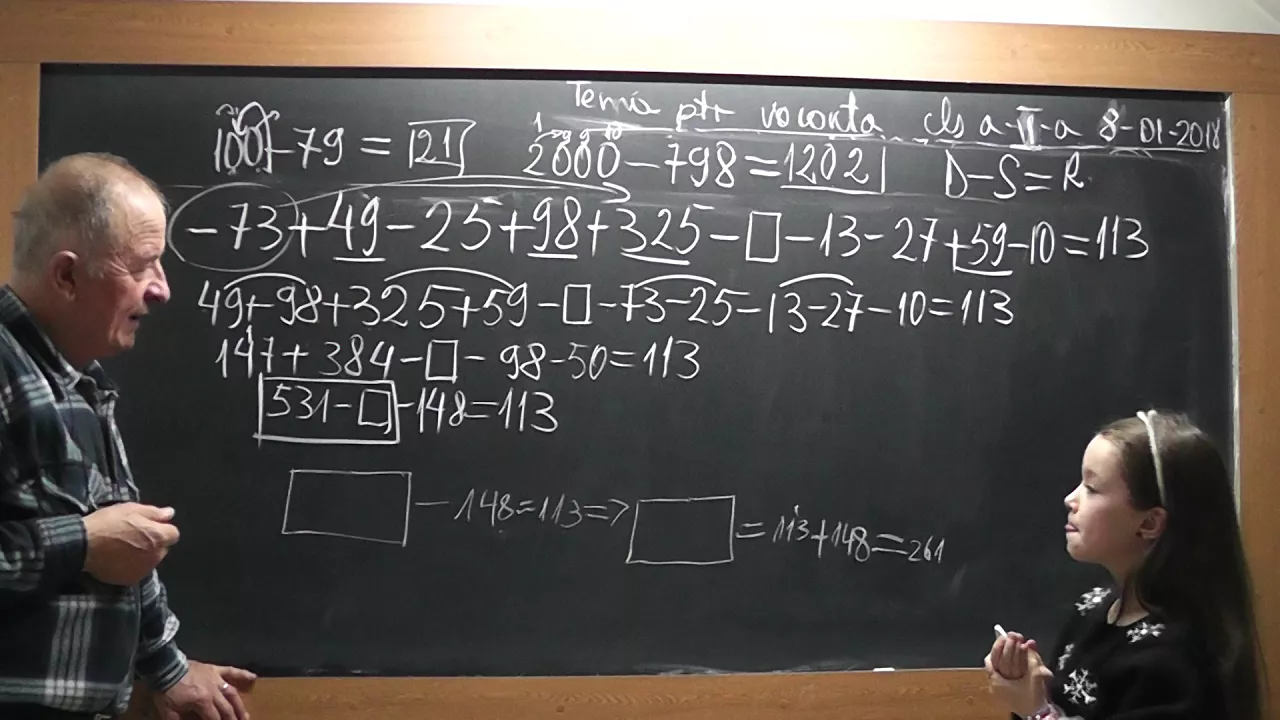 Temă ptr vacanta cls a-II-a 8-01-2018
100 - 79 = 21 2000 - 798 = 1202 D-S=R
-73+49-25+98+325-□-13-27+59-10=113
49+98+325+59-□-73-25-13-27-10=113
147+384-□-98-50=113
531-□-148=113
□-148=113=>□=113+148=261